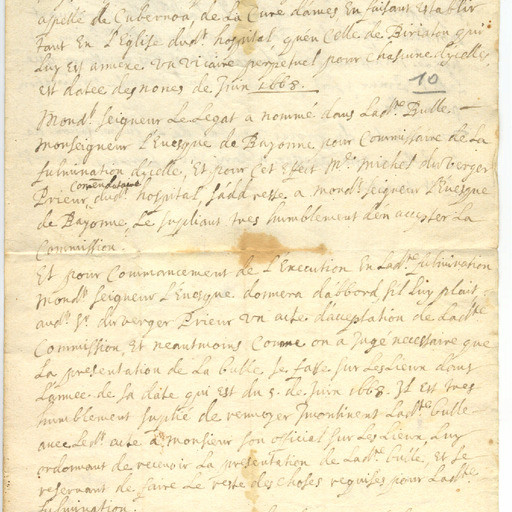 appellé de Cubernoa, de La Cure dames En faisant Establir
tant En L'Eglise dudt. hospital, quen Celle de Biriatou qui
Luy Est annexe Un Vicaire perpetuel pour Chascune d'jcelles,
est datee des nones de Juin 1668.
10
Mondt. seigneur Le Legat a nommé dans Ladte. Bulle
Monseigneur L'Evesque de Bayonne pour Commissaire de La
fulmination d'jcelle, Et pour Cet effect Mr. Michel du Verger
Commendataire
Prieur dudt. hospital s'addresse a mondt. seigneur L'Evesque
de Bayonne, Le supliant tres humblement den accepter La
Commission.
Et pour Commancement de L'Execution En Ladte. fulmination
Mondt. seigneur L'Evesque donnera dabbord, sil Luy plait
audt. Sr. du verger Prieur Un acte d'acceptation de Ladte.
Commission, Et neantmoins Comme on a Jugé necessaire que
La presentation de La bulle se fasse sur Les Lieux dans
L'année de sa date qui est du 5. de Juin 1668. Il est tres
humblement suplié de renvoyer Ladte. bulle
avec Ledt. acte a Monsieur son official sur Les Lieux Luy
ordonnant de recevoir La presentation de Ladte. bulle, et se
reservant de faire Le reste des choses requises pour Ladte.
fulmination.